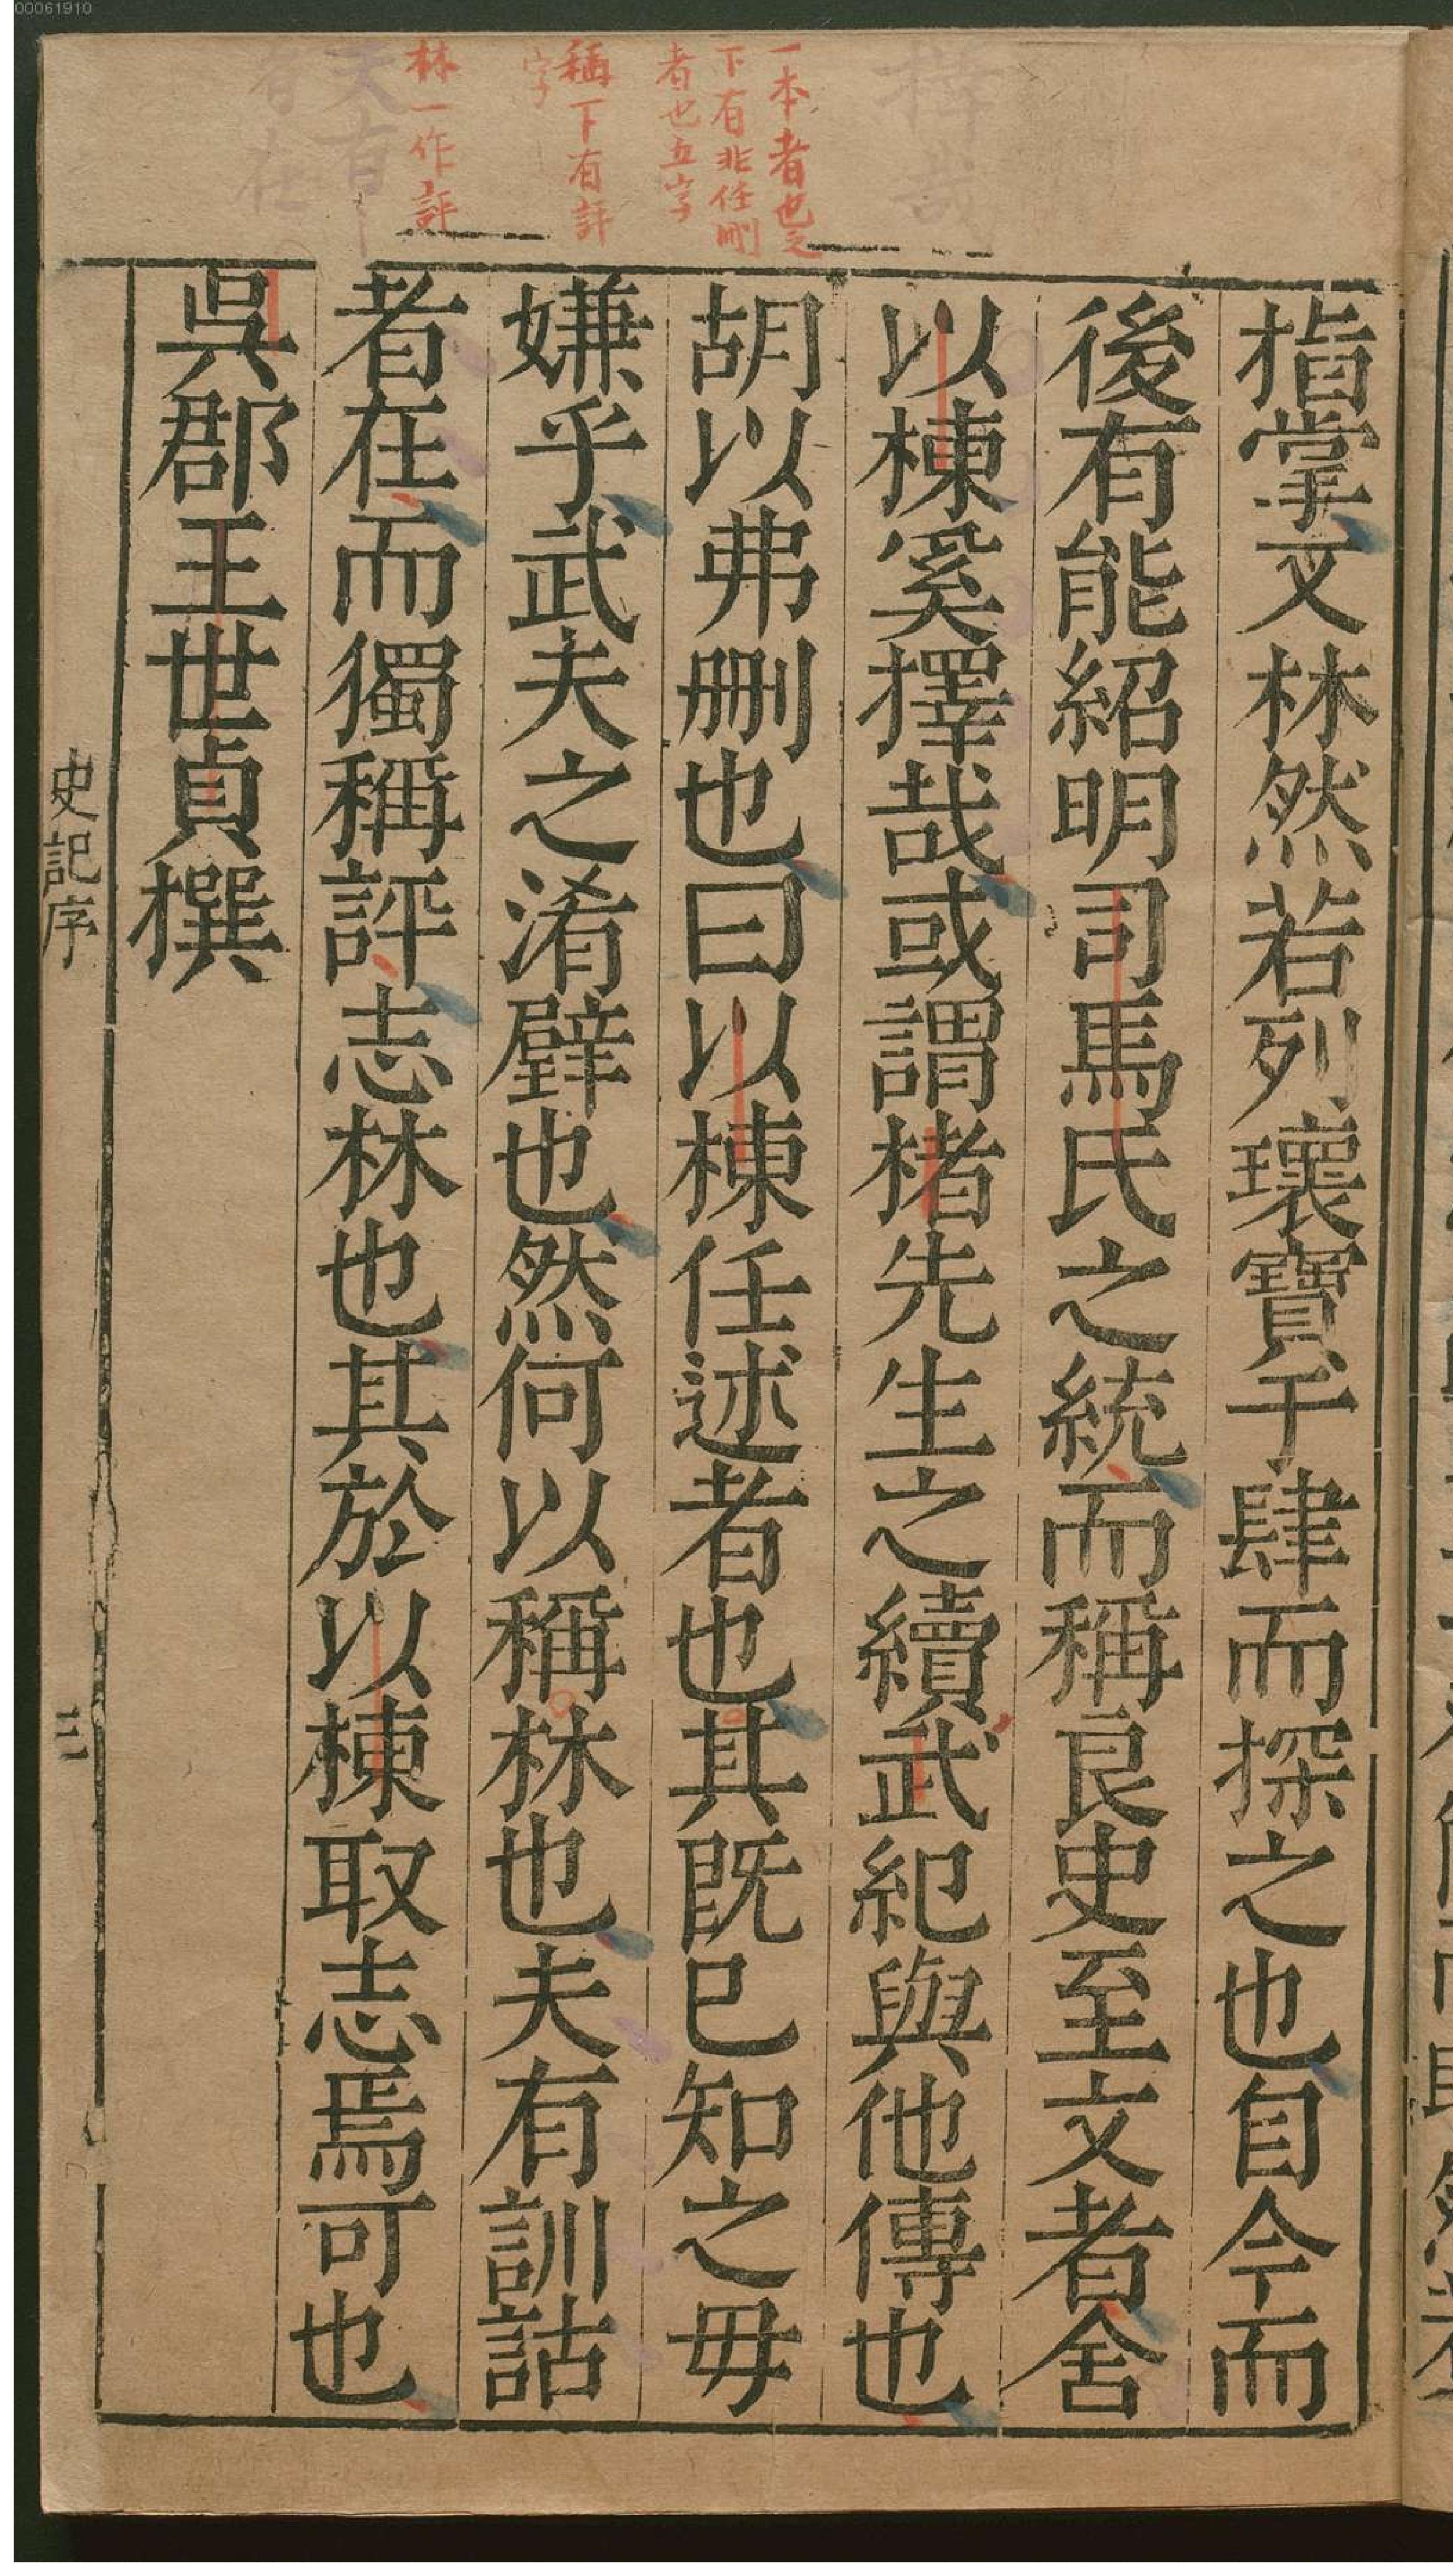 00061910
一本者也之
下有非任刪
者也五字
稱下有評
字
林一作評
指掌文林然若列瓌寶于肆而探之也自今而
後有能紹明司馬氏之統而稱良史至文者舍
以棟奚擇哉或謂楮先生之續武紀與他傳也
胡以弗刪也曰以棟任述者也其既已知之毋
嫌乎武夫之淆璧也然何以稱林也夫有訓詁
者在而獨稱評志林也其於以棟取志焉可也
吳郡王世貞撰
史記序
三